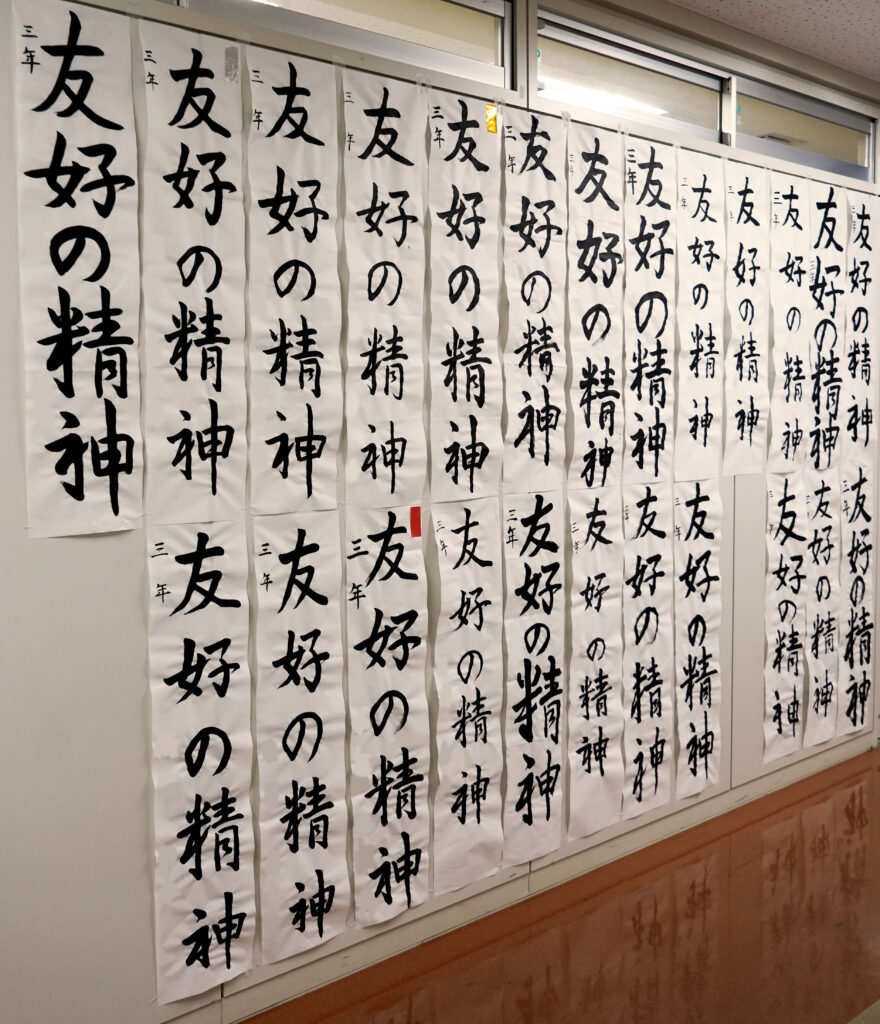 友好の精神
友好の精神
友好の精神
三年
友好の精神
三年
友好の精神
三年
友好の精神
三年
友好の精神
三年
友好の精神
三年
友好の精神
三年
友好の精神
三年
友好の精神
三年
友好の精神
三年
友好の精神
三年
友好の精神
三年
友好の精神
友好の精神
三年
友好の精神
三年
友好の精神
友好の精神
三年
友好の精神
三年
友好の精神
三年
友好の精神
三年
友好の精神
三年
友好の精神
三年